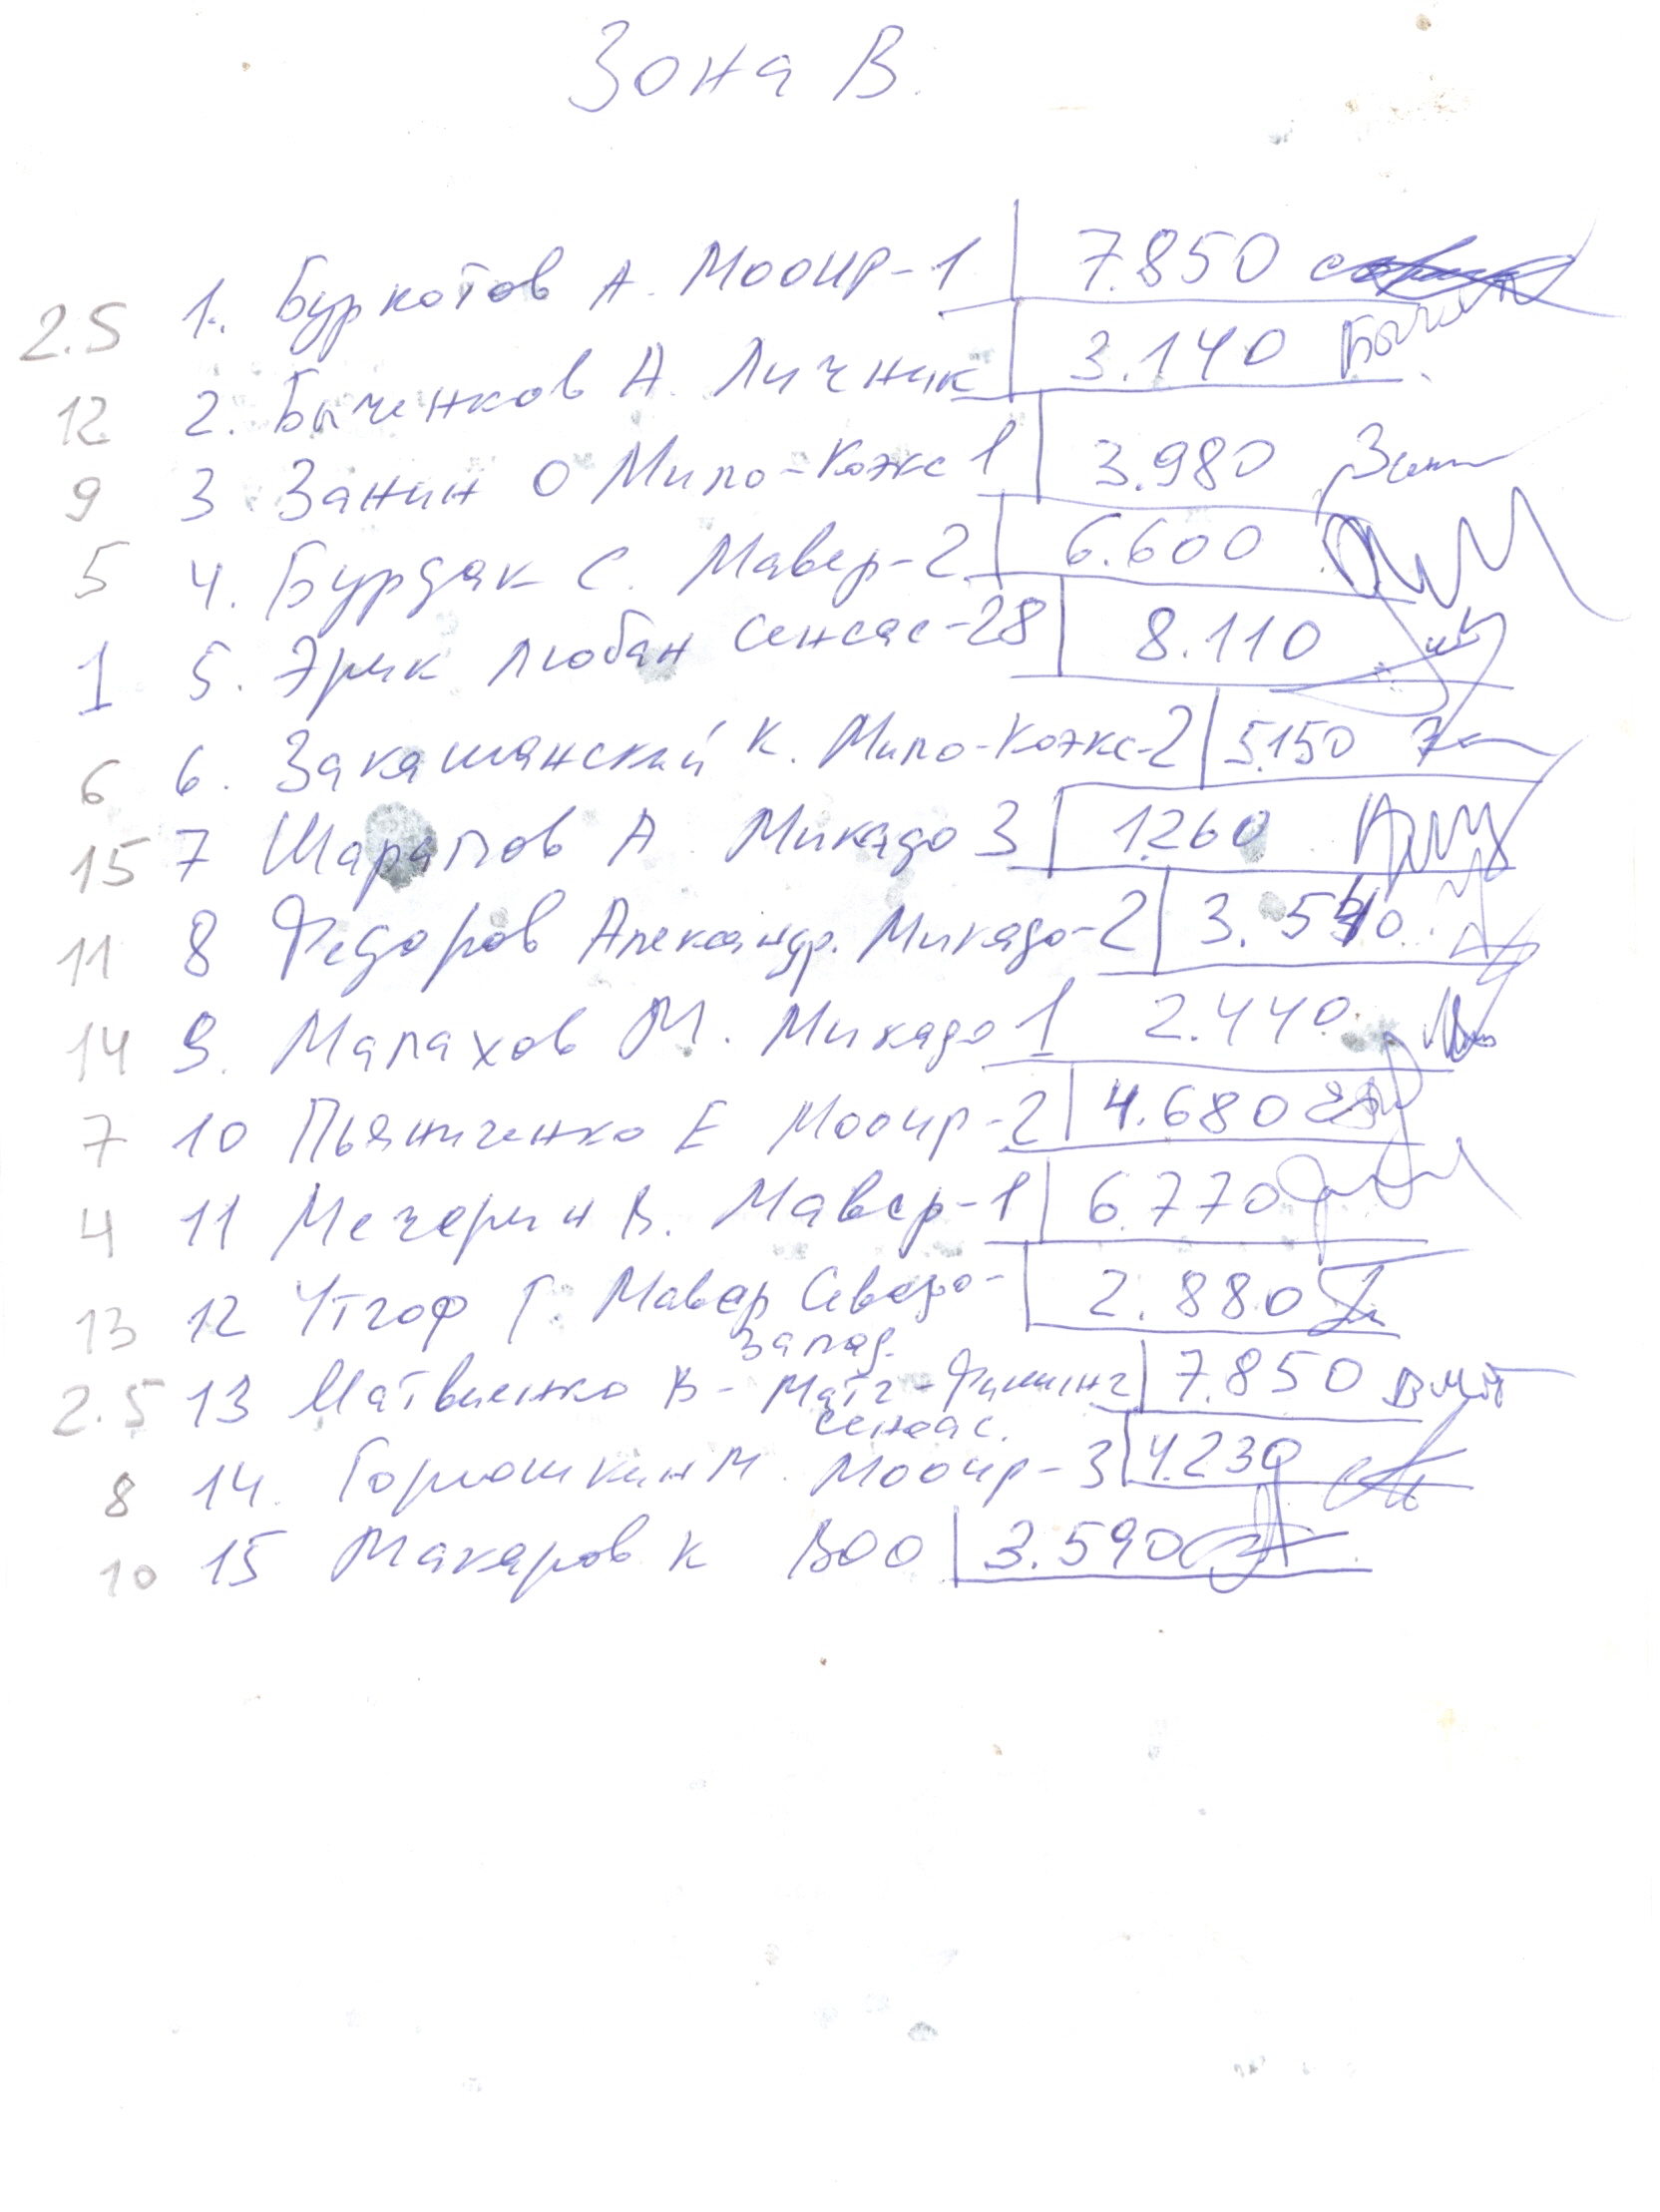 Зона В.
2.5 1. Буркотов А. Мооир-1 7.850
12 2. Быченков А. Личник 3.140
9 3 Занин О Мило-Кожс 1 3.980
5 4. Бурдак С. Мавер-2 6.600
1 5. Эрик Любан Сенсас-28 8.110
6 6. Закашанский К. Мило-Кожс-2 5.150
15 7 Шарапов А Микадо 3 1.260
11 8 Федоров Александр. Микадо-2 3.510
14 9. Малахов М. Микадо 1 2.440
7 10 Пьянченко Е Мооир-2 4.680
4 11 Мечерин В. Мавер-1 6.770
13 12 Утгоф Г. Мавер Северо- 2.880
Запад.
2.5 13 Матвиенко В- Матч-Фишинг 7.850
Сенсас.
8 14. Горюшкин М. Мооир-3 4.230
10 15 Макаров К ВОО 3.590